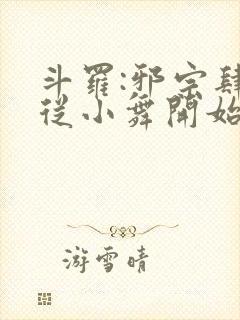 斗羅:邪宗肆
從小舞開始
游雪晴